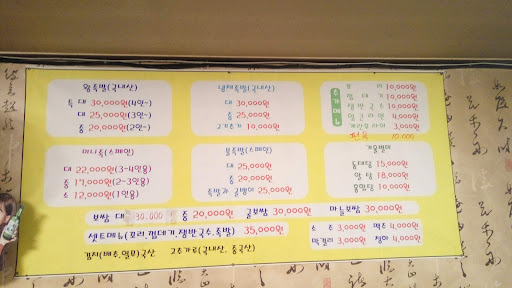 왕족발(국내산)
특대 30,000원(4인~)
대 25,000원(3인~)
중 20,000원(2인~)
냉채족발(국내산)
대 30,000원
중 25,000원
고기추가 10,000원
추가메뉴
10,000원
껍데기 10,000원
쟁반국수 10,000원
얼큰라면 4,000원
계란후라이 3,000원
편육 10,000
미니족(스페인)
대 22,000원(3~4인용)
중 17,000원(2~3인용)
소 12,000원(1인용)
불족발(스페인)
대 25,000원
중 20,000원
족발과 골뱅이 25,000원
겨울별미
동태탕 15,000원
알탕 18,000원
홍합탕 10,000원
보쌈 대 30,000원 중 20,000원 굴보쌈 30,000원 마늘보쌈 30,000원
셋트메뉴(꼬리,껍데기,쟁반국수,족발) 35,000원
김치(배추,열무)국산 고추가루(국내산, 중국산)
소주 3,000원 맥주 4,000원
막걸리 3,000원 청하 4,000원